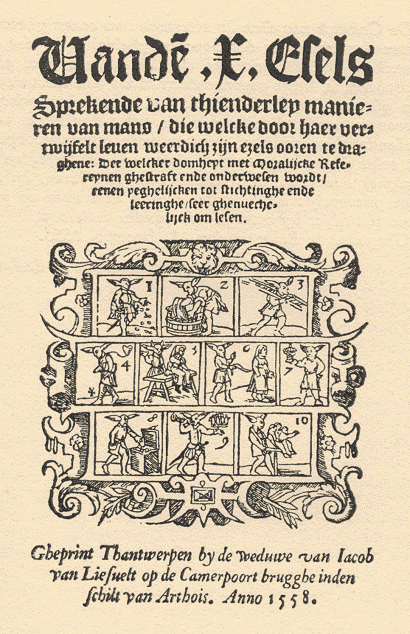 Uandē .X. Esels
Sprekende van thienderley manie-
ren van mans / die welcke door haer ver-
twijfelt leuen weerdich zijn ezels ooren te dra-
ghene: Der welcker domheyt met Moralijcke Refe-
reynen ghestraft ende onderwesen wordt /
eenen yeghelijcken tot stichtinghe ende
leeringhe / seer ghenueche-
lijck om lesen.
1 2 3
4 5 6 7
8 9 10
Gheprint Thantwerpen by de weduwe van Iacob
van Liesuelt op de Camerpoort brugghe inden
schilt van Arthois. Anno 1558.